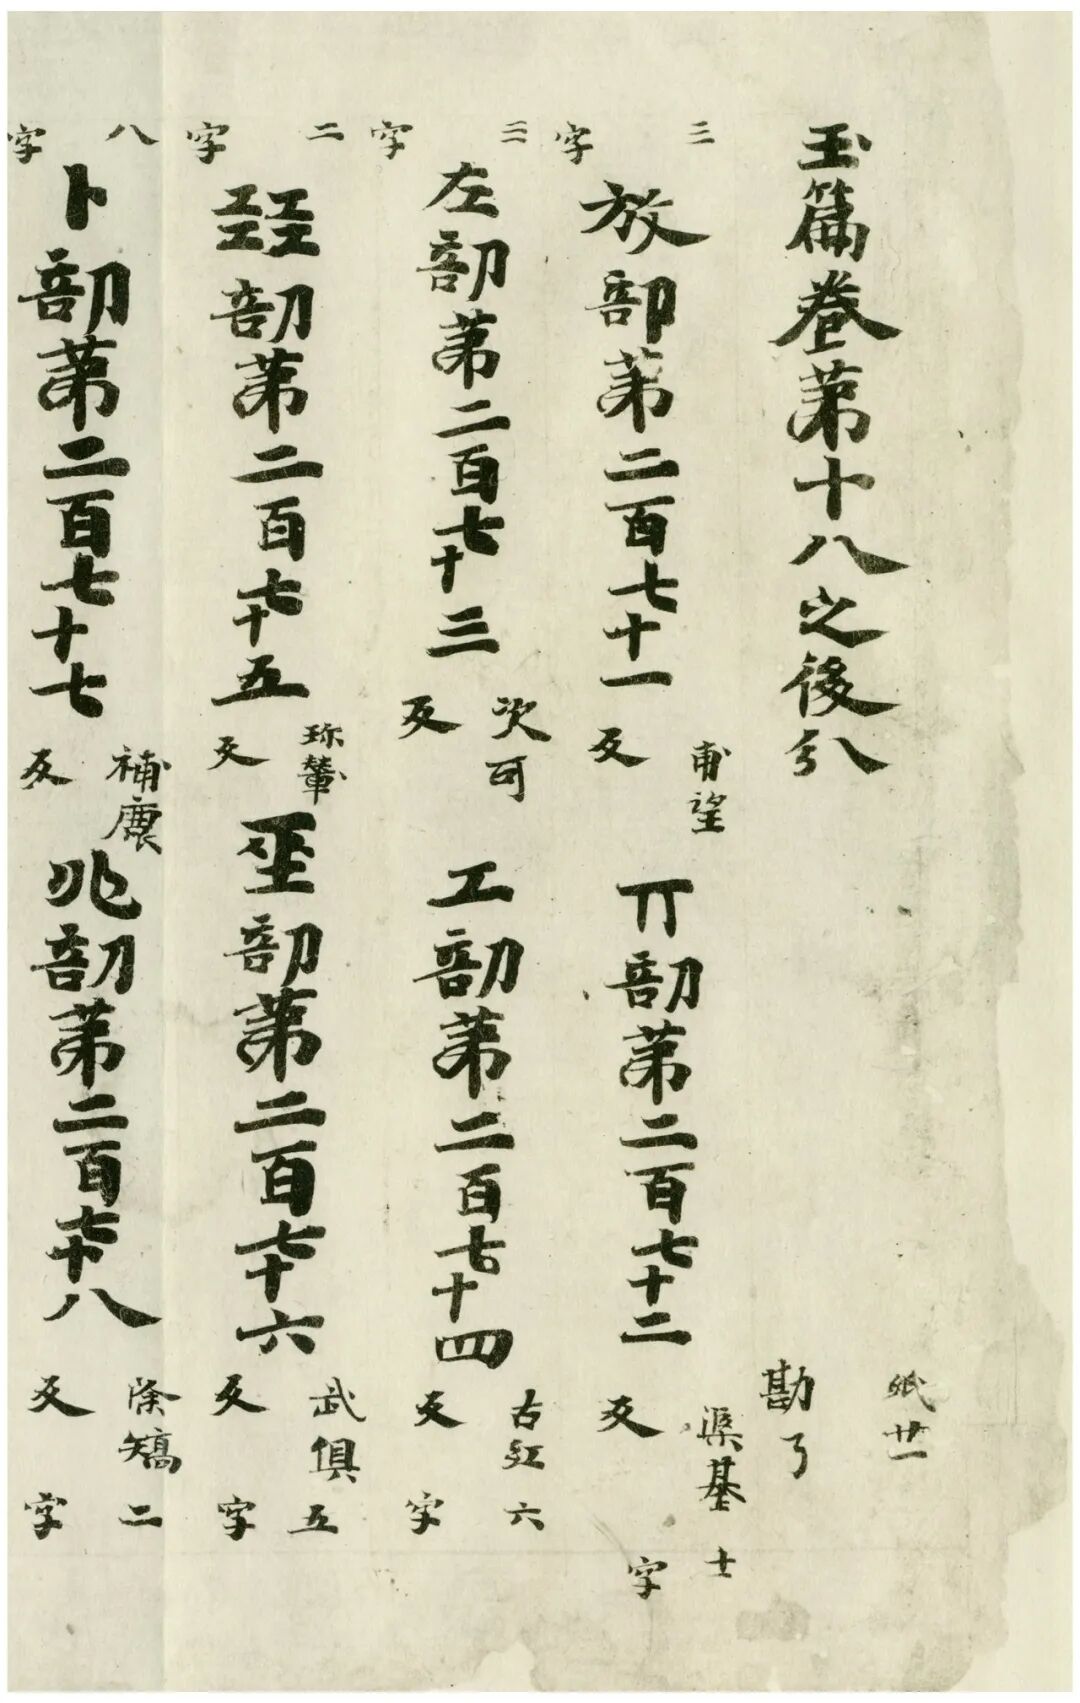 紙廿一
玉篇卷第十八之後分 勘了
三字 放部第二百七十一 甫望反 丌部第二百七十二 渠基反 十一字
三字 左部第二百七十三 次可反 工部第二百七十四 古紅反 六字
二字 㠭部第二百七十五 珎輦反 巫部第二百七十六 武俱反 五字
八字 卜部第二百七十七 補鹿反 兆部第二百七十八 除矯反 二字